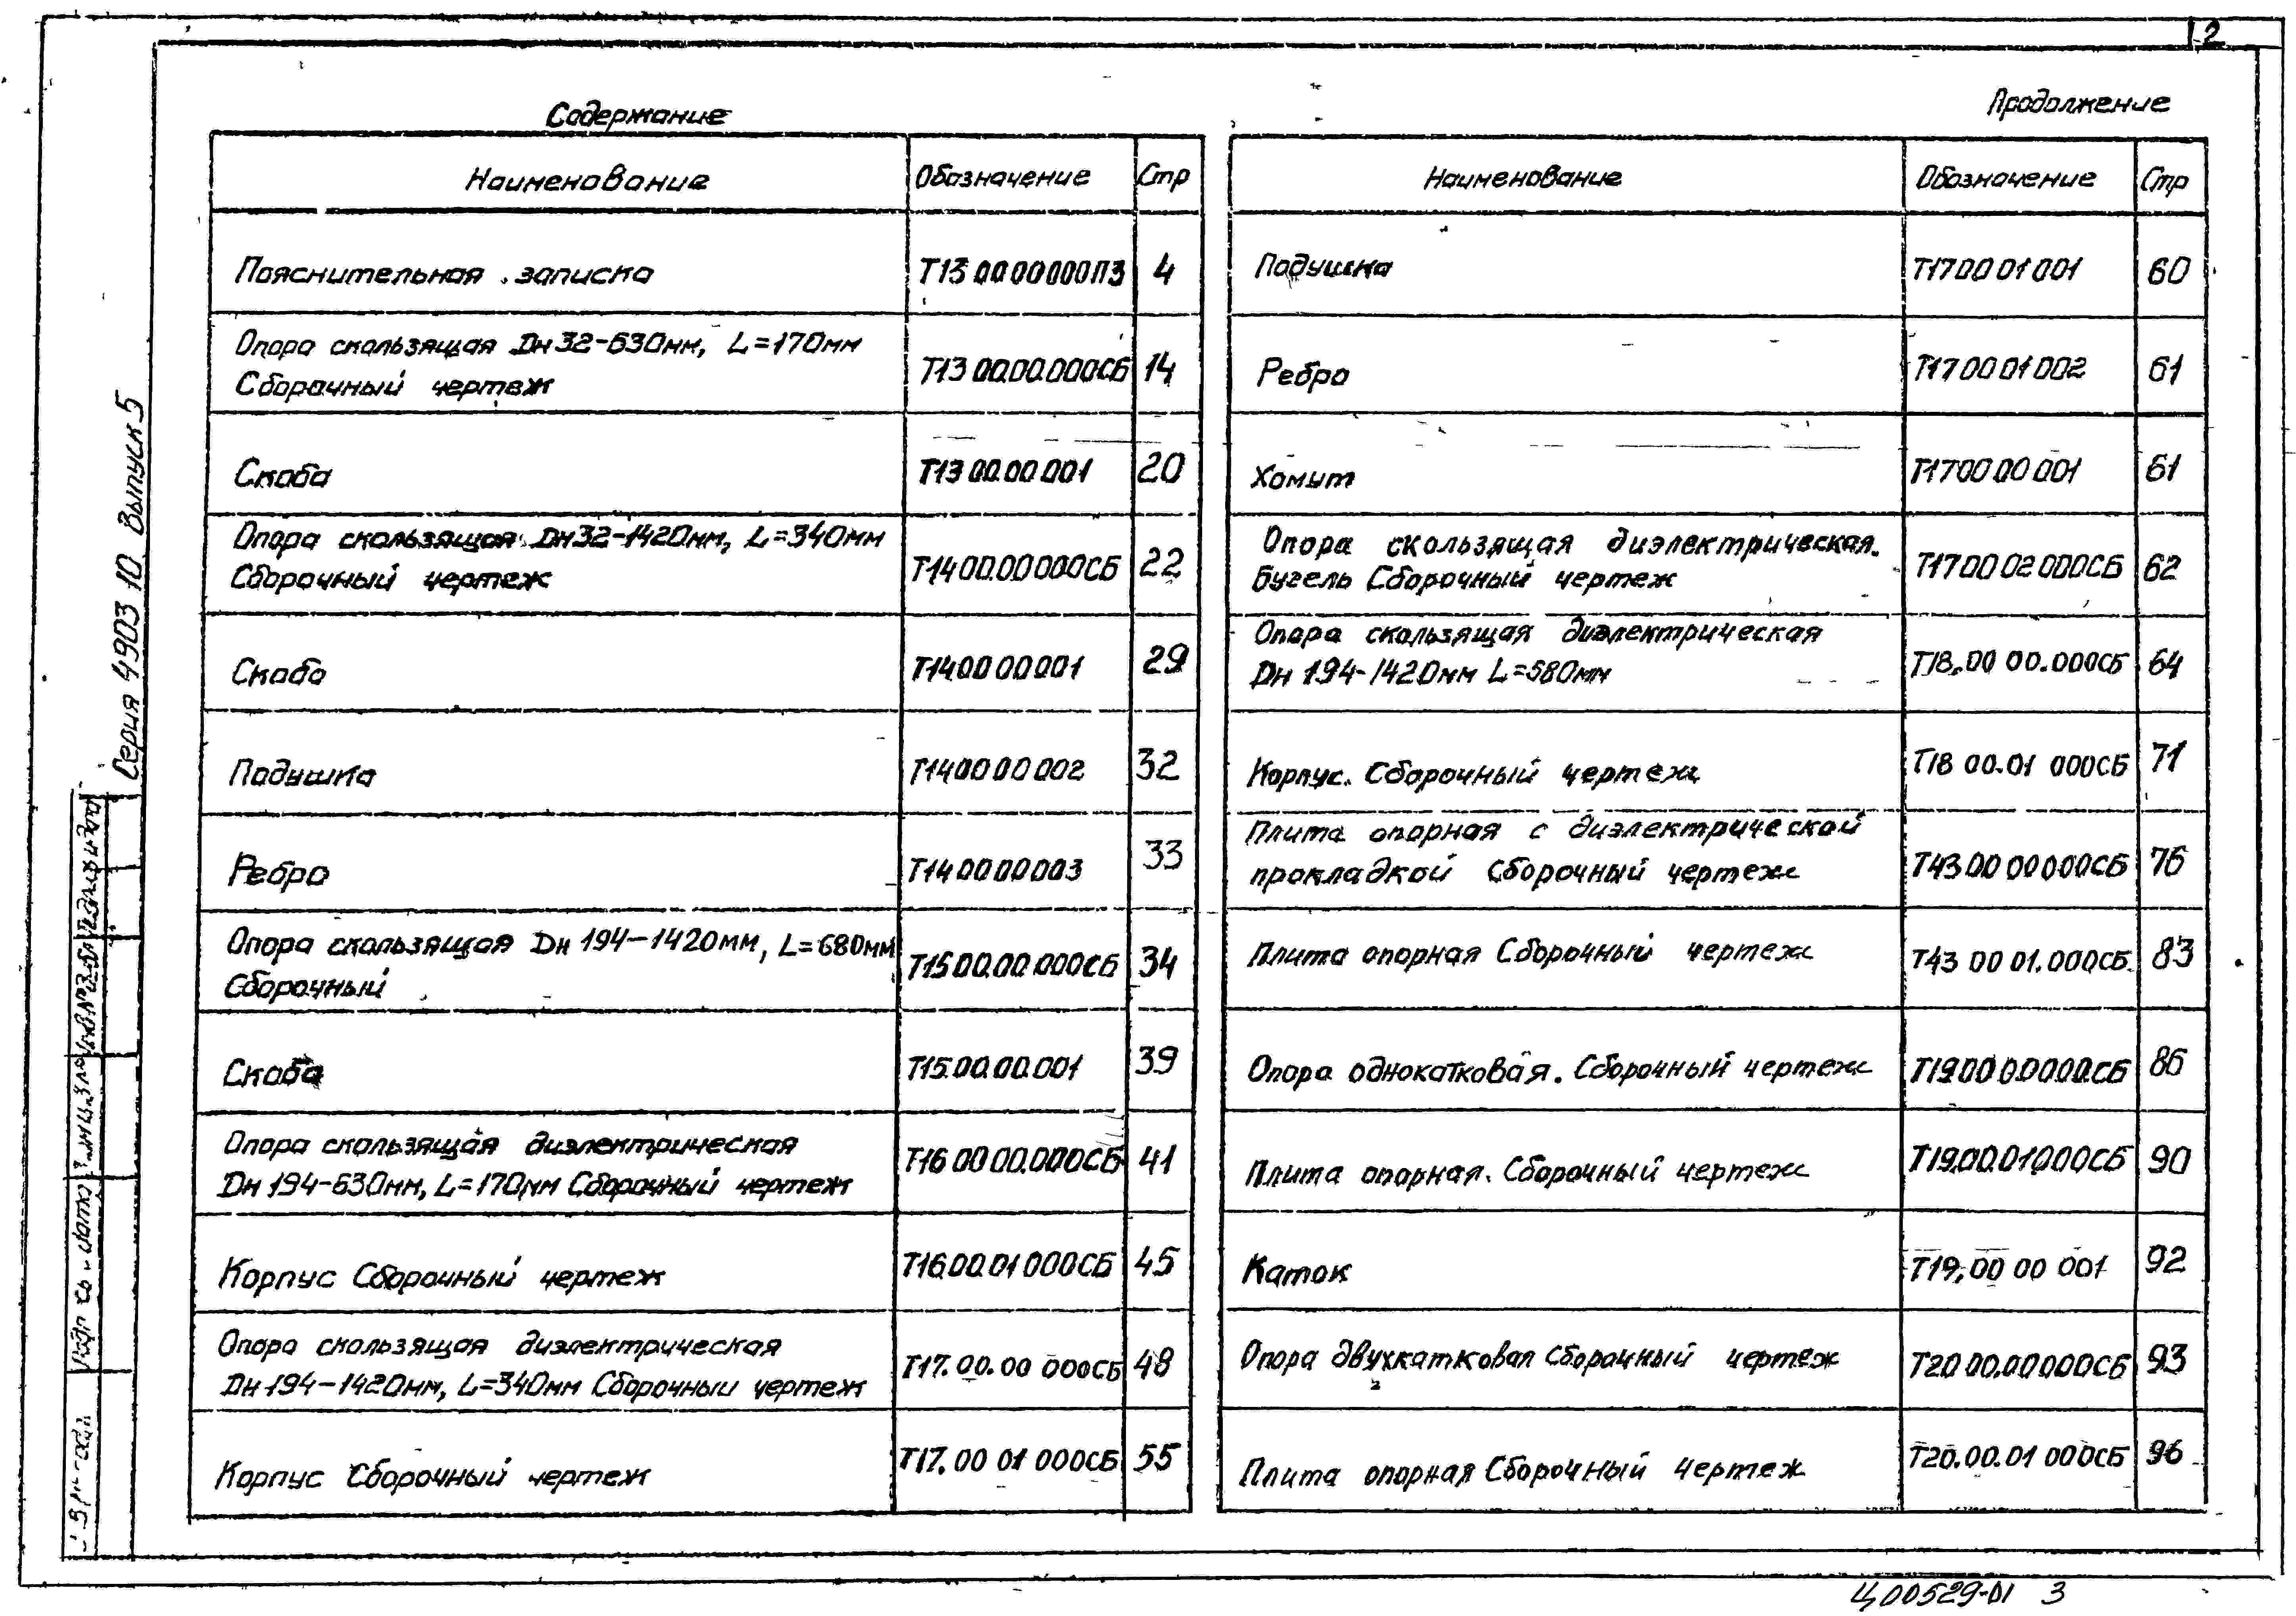 2
Содержание
Наименование Обозначение Стр
Пояснительная записка Т13 00 00 000ПЗ 4
Опора скользящая Dн 32-630мм, L=170мм
Сборочный чертеж Т13 00.00.000СБ 14
Скоба Т13 00.00 001 20
Опора скользящая Dн32-1420мм, L=340мм
Сборочный чертеж Т14 00.00 000СБ 22
Скоба Т14.00 00 001 29
Подушка Т14 00 00 002 32
Ребро Т14 00 00 003 33
Опора скользящая Dн 194-1420мм, L=680мм
Сборочный Т15 00.00 000СБ 34
Скоба Т15.00.00.001 39
Опора скользящая диэлектрическая
Dн 194-630мм, L=170мм Сборочный чертеж Т16 00 00.000СБ 41
Корпус Сборочный чертеж Т16.00.01 000СБ 45
Опора скользящая диэлектрическая
Dн 194-1420мм, L=340мм Сборочный чертеж Т17.00.00 000СБ 48
Корпус Сборочный чертеж Т17.00 01 000СБ 55
Продолжение
Наименование Обозначение Стр
Подушка Т17 00 01 001 60
Ребро Т17 00 01 002 61
Хомут Т17 00 00 001 61
Опора скользящая диэлектрическая.
Бугель Сборочный чертеж Т17 00 02 000СБ 62
Опора скользящая диэлектрическая
Dн 194-1420мм L=680мм Т18.00 00.000СБ 64
Корпус. Сборочный чертеж Т18 00.01 000СБ 71
Плита опорная с диэлектрической
прокладкой Сборочный чертеж Т43 00 00 000СБ 76
Плита опорная Сборочный чертеж Т43 00 01.000СБ 83
Опора однокатковая. Сборочный чертеж Т19 00 00.000.СБ 86
Плита опорная. Сборочный чертеж Т19.00.01 000СБ 90
Каток Т19.00 00 001 92
Опора двухкатковая Сборочный чертеж Т20 00.00 000СБ 93
Плита опорная Сборочный чертеж Т20.00.01 000СБ 96
Серия 4903 10 Выпуск 5
Ц00529-01 3